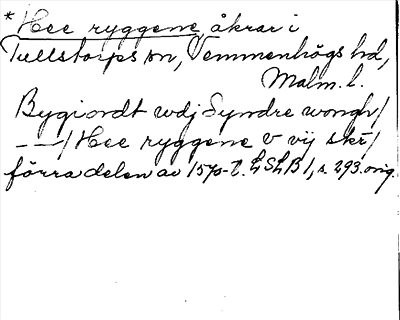 *Hee ryggene, åkrar i
Tullstorps sn, Vemmenhögs hd,
Malm. l.
Bygiordt wdj Syndre wongh/
---/Hee ryggene v vij skr/
förra delen av 1570-t. LSLB 1, s. 293. orig.